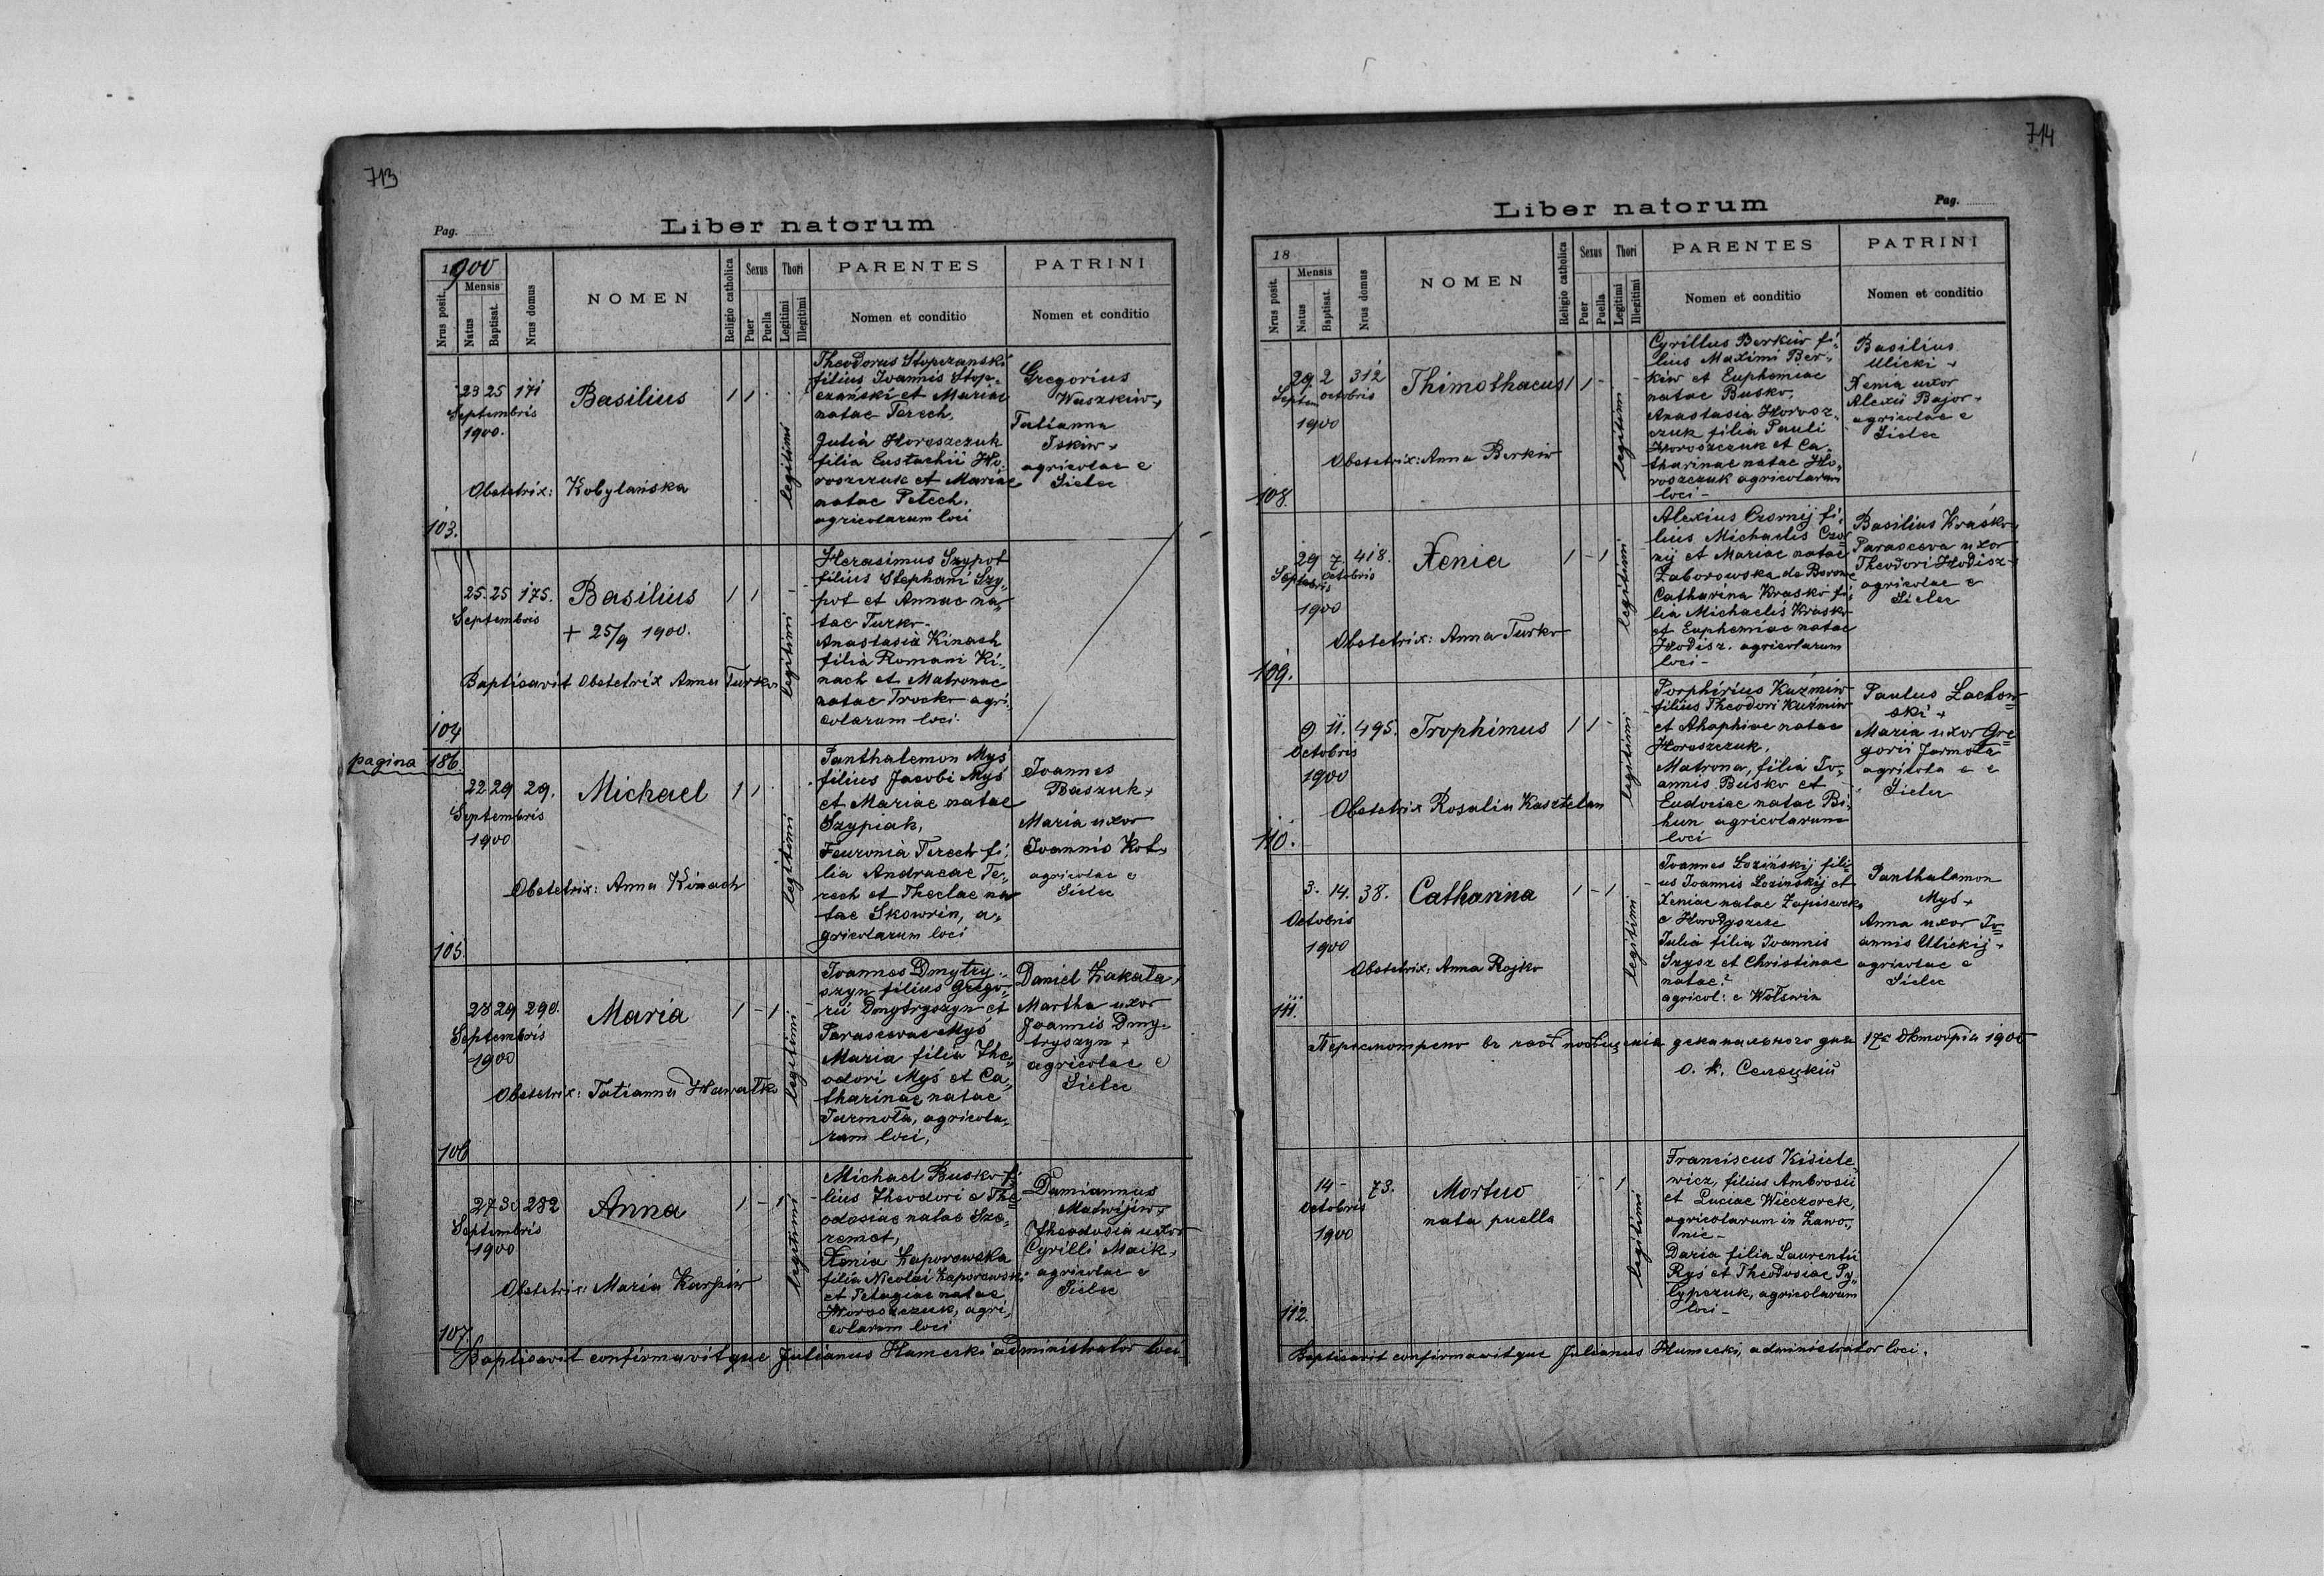 713
Pag.
Liber natorum
1900
Nrus posit.
Mensis
Natus
Baptisat.
Nrus domus
NOMEN
Religio catholica
Sexus
Puer
Puella
Thori
Legitimi
Illegitimi
PARENTES
Nomen et conditio
PATRINI
Nomen et conditio
103.
23 25 171
Septembris
1900.
Basilius
1 1
legitimi
Obstetrix: Kobylańska
Theodorus Stopczanski
filius Ioannis Stop-
czański et Mariae
natae Terech,
Julia Horoszczuk
filia Eustachii Ho-
roszczuk et Mariae
natae Petech.
agricolarum loci
Gregorius
Waszkiw +
Tatianna
Iskiw +
agricolae e
Sielec
104
25. 25 175.
Septembris
Basilius
+ 25/9 1900.
1 1
legitimi
Baptisavit Obstetrix Anna Turko
Herasimus Szypot
filius Stephani Szy-
pot et Annae na-
tae Turko-
Anastasia Kinach
filia Romani Ki-
nach et Matronae
natae Trocko agri-
colarum loci.
pagina 186.
22 29 29.
Septembris
1900
Michael
1 1
legitimi
Obstetrix: Anna Kinach
105.
Panthalemon Myś
filius Jacobi Myś
et Mariae natae
Szypiak,
Feuronia Terech fi-
lia Andraeae Te-
rech et Theclae na
tae Skowrin, a-
gricolarum loci
Ioannes
Baszuk +
Maria uxor
Ioannis Kot +
agricolae e
Sielec
28 29 290.
Septembris
1900
Maria
1 - 1
legitimi
Obstetrix: Tatianna Hawatko
106
Ioannes Dmytry-
szyn filius Grego-
rii Dmytryszyn et
Parascevae Myś
Maria filia The-
odori Myś et Ca-
tharinae natae
Jarmoła, agricola-
rum loci,
Daniel Zakała +
Martha uxor
Joannis Dmy-
tryszyn +
agricolae e
Sielec
27 30 282
Septembris
1900
Anna
1 - 1
legitimi
Obstetrix: Maria Karpiw
107.
Michael Busko fi-
lius Theodori e The-
odosiae natae Sze-
remet,
Xenia Zaporowska
filia Nicolai Zaporowski
et Pelagiae natae
Horoszczuk, agri-
colarum loci
Damiannus
Matwijiw +
Theodosia uxor
Cyrilli Maik +
agricolae e
Sielec
Baptisavit confirmavitque Julianus Humecki administrator loci
714
Liber natorum
Pag.
18
Nrus posit.
Mensis
Natus
Baptisat.
Nrus domus
NOMEN
Religio catholica
Sexus
Puer
Puella
Thori
Legitimi
Illegitimi
PARENTES
Nomen et conditio
PATRINI
Nomen et conditio
29 2 312
Septem octobris
1900
Thimothaeus
1 1 -
legitimi
Obstetrix: Anna Berkiw
108.
Cyrillus Berkiw fi-
lius Maximi Ber-
kiw et Euphemiae
natae Busko,
Anastasia Horosz-
czuk filia Pauli
Horoszczuk et Ca-
tharinae natae Ho-
roszczuk agricolarum
loci -
Basilius
Ulicki +
Xenia uxor
Alexii Bajor +
agricolae e
Sielec
29 7 418.
Septembris octobris
1900
Xenia
1 - 1
legitimi
Obstetrix: Anna Turko
109.
Alexius Czornij fi-
lius Michaelis Czor
nij et Mariae natae
Zaborowska de
Catharina Krasko fi-
lia Michaelis Krasko
et Euphemiae natae
Hodisz. agricolarum
loci -
Basilius Krasko +
Parasceva uxor
Theodori Hodisz +
agricolae e
Sielec
9 11. 495.
Octobris
1900
Trophimus
1 1 -
legitimi
Obstetrix Rosalia Kasztelan
110.
Porphirius Kuzmiw
filius Theodori Kuźmiw
et Ahaphiae natae
Horoszczuk.
Matrona, filia Io-
annis Busko et
Eudociae natae Bi-
hun agricolarum
loci
Paulus Lachow=
ski +
Maria uxor Gre=
gorii Jarmoła
agricola e e
Sielec
3. 14. 38.
Octobris
1900
Catharina
1 - 1
legitimi
Obstetrix: Anna Rojko
111.
Ioannes Łoziński filii=
us Ioannis Lozinskij et
Xeniae natae
e Horodyszcze
Julia filia Ioannis
Szysz et Christinae
natae?
agricol: e Wołswin
Panthalemon
Myś +
Anna uxor Io=
annis Ulickij +
agricolae e
Sielec
Пересмотрено въ деканального дня 17 1900
о. Селецкий
14 - 73.
octobris
1900
Mortuo
nata puella
- 1
legitimi
112.
Franciscus Kisiele-
wicz, filius Ambrosii
et Luciae Wieczorek,
agricolarum in Zawo-
nie -
Daria filia Laurentii
Ryś et Theodosiae Py-
lypczuk, agricolarum
loci -
Baptisavit confirmavitque Julianus Humecki, administrator loci.